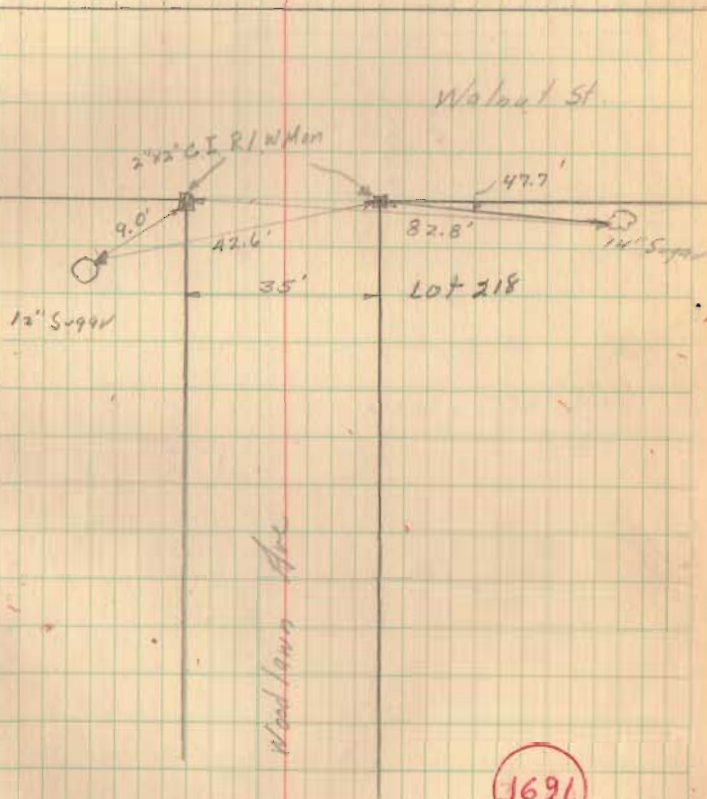 Walnut St.
2"x2" C.I. R/W Mon
47.7'
9.0'
42.6'
82.8'
14" Sugar
12" Sugar
35'
Lot 218
Woodlawn Ave
1691